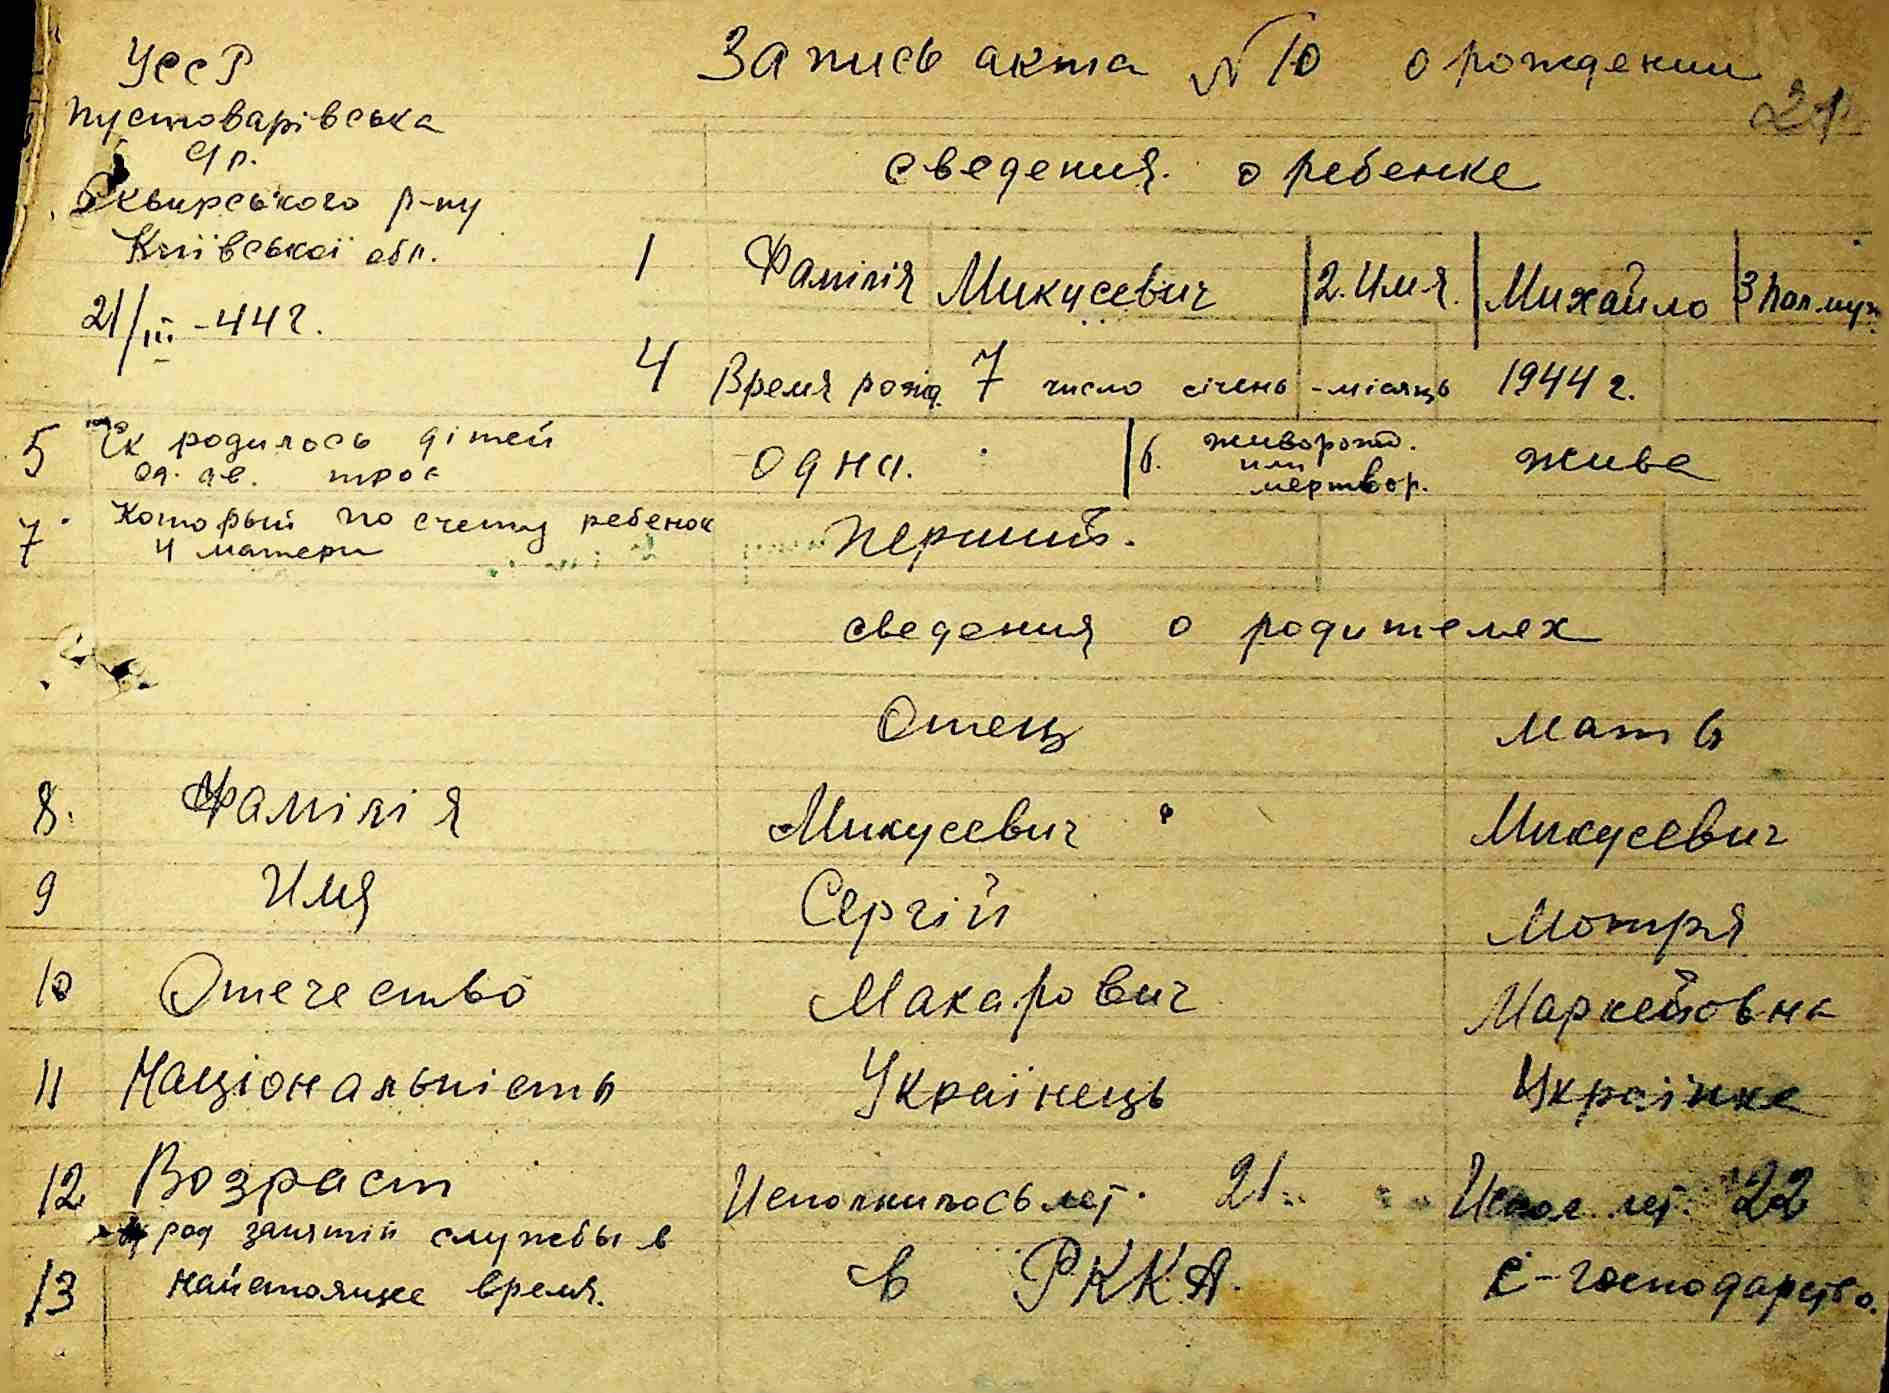 УССР
Запись акта №10 о рождении
21
Пустоварівська
с/р.
Сквирського р-ну
Київської обл.
21/III-44г.
сведения о ребенке
1 Фамілія Микусевич 2. Имя. Михайло 3 Пол муж.
4 Время рожд. 7 число січень -місяць 1944 г.
5 Ск родилось дітей одна. 6. живорожд. или мертвор. жива
7 Который по счету ребенок у матери перший.
сведения о родителех
Отец Мать
8. Фамілія Микусевич Микусевич
9 Имя Сергій Мотря
10 Отечество Макарович Маркейовна
11 Національність Українець Українка
12 Возраст Исполнилось лет. 21. Испол. лет. 22
13 род занятій службы в найстоящее время. в РККА. с-господарство.